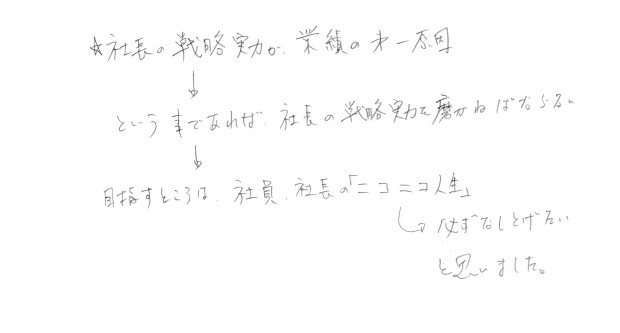 ☆社長の戦略実力が、業績の第一原因
↓
という事であれば、社長の戦略実力を磨かねばならない
↓
目指すところは、社員、社長の「ニコニコ人生」
↳必ずなしとげたい
と思いました。